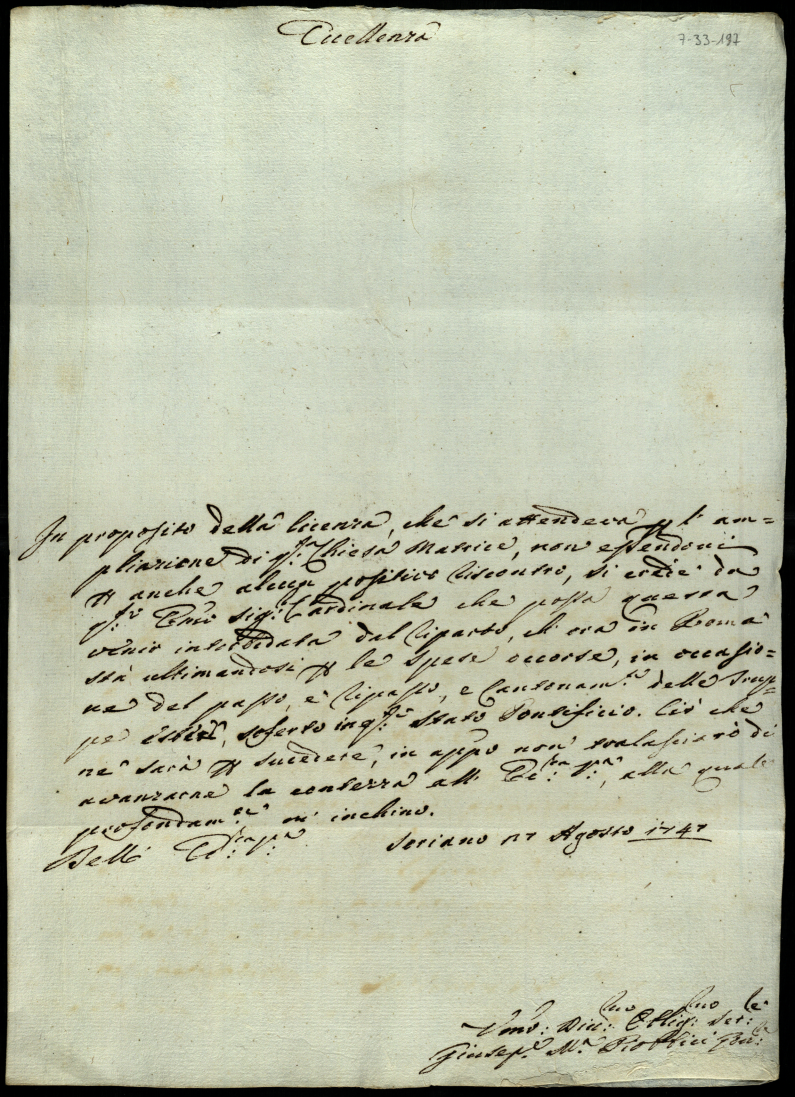 Eccellenza
7-33-197
In proposito della licenza, che si attendeva p l' am=
pliazione di q.sta Chiesa Matrice, non essendoci
p anche alcun positivo riscontro, si crede da
q.sto Emo Sig.r Cardinale che possa questa
venir intorbidata dal riparto, ch' ora in Roma
stà ultimandosi p le spese occorse, in occasio=
ne del passo, e ripasso, e Cantonam.to delle Trup=
pe Estere, soferto in q.sto Stato Pontificio. Ciò che
ne sarà p succedere, in app.o non tralasciarò di
avanzarne la contezza all' Ecc.za V.ra, alla quale
profondam.te m' inchino.
Dell' Ecc.za V.ra Soriano 27 Agosto 1747
Umo: Div:mo Oblig:mo Ser:le
Giusep.e M.a